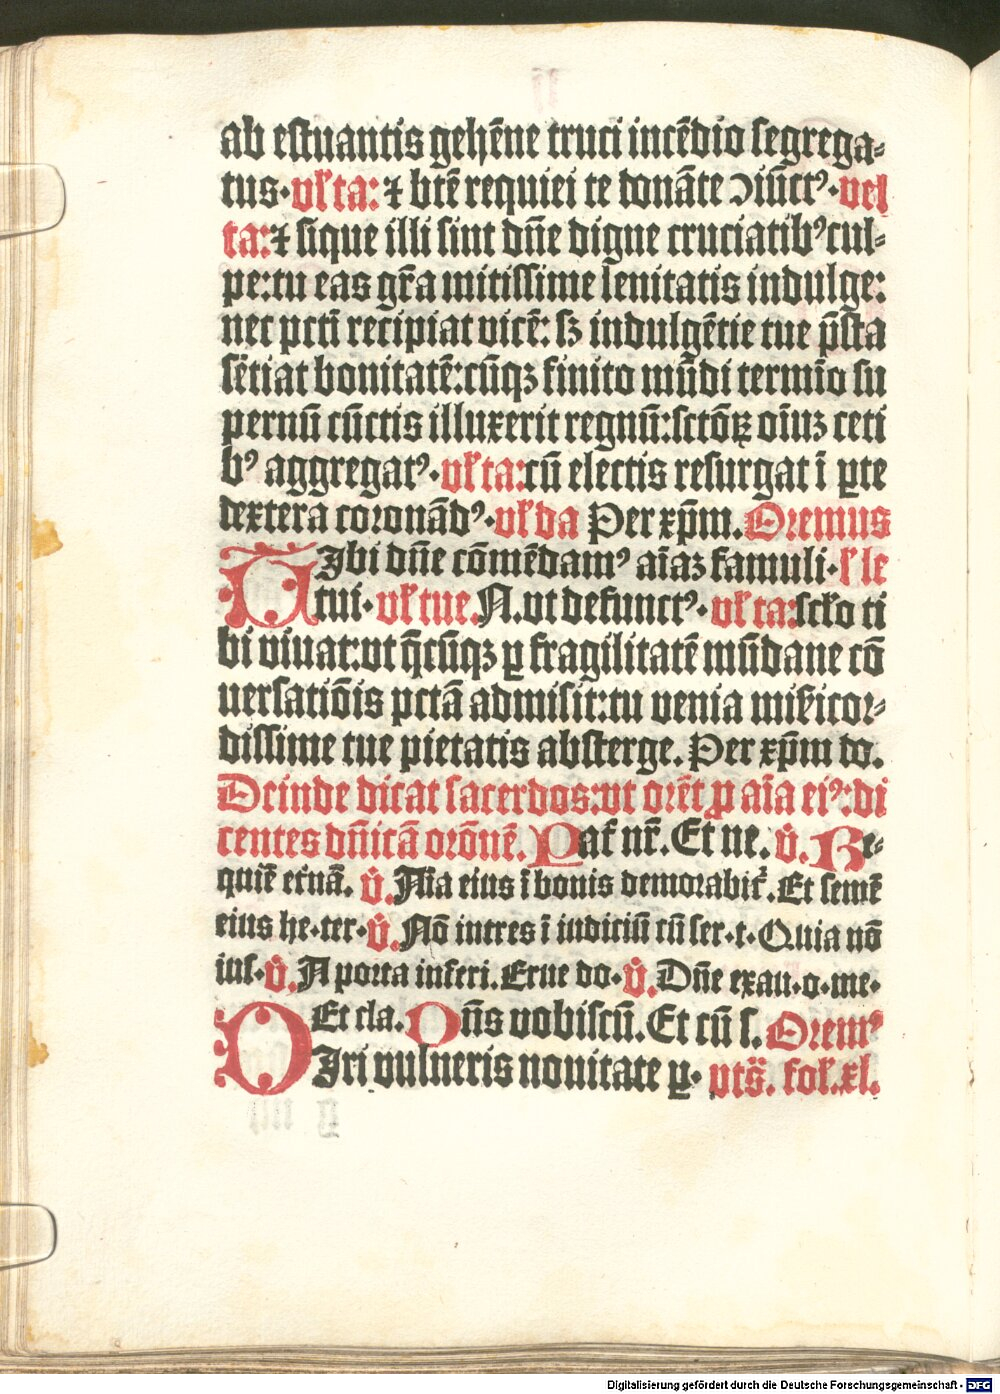 ab estuantis gehēne truci incēdio segrega⸗
tus· vl̄ ta: ⁊ btē requiei te donāte ↄiūctꝰ· vel
ta: ⁊ sique illi sint dn̄e digne cruciatibꝰ cul⸗
pe: tu eas gr̄a mitissime lenitatis indulge:
nec pcti recipiat vicē: sꝫ indulgētie tue p̄sta
sētiat bonitatē: cūqꝫ finito mūdi termīo su
pernū cūctis illuxerit regnū: sctōꝝ oīuꝫ ceti
bꝰ aggregatꝰ· vl̄ ta: cū electis resurgat ī ꝑte
dextera coronādꝰ· vl̄ da Per xp̄m. Oremus
TIbi dn̄e cōmēdamꝰ aīaꝫ famuli· l̄ le
tui· vl̄ tue. N. vt defunctꝰ· vl̄ ta: scl̄o ti
bi viuat: vt q̄cūqꝫ ꝑ fragilitatē mūdane cō
uersatiōis pctā admisit: tu venia mīicor⸗
dissime tue pietatis absterge. Per xp̄m do.
Deinde dicat sacerdos: vt orēt ꝓ aīa eiꝰ: di
centes dn̄icā orōnē. Pat̄ nr̄. Et ne. v̊. Re⸗
quiē et̄nā. v̊. Aīa eius ī bonis demorabit̄. Et semē
eius he·ter· v̊. Nō intres ī iudiciū cū ser·t· Quia nō
ius· v̊. A porta inferi. Erue do· v̊. Dn̄e exau·o·me·
Et cla. Dn̄s vobiscū. Et cū s. Oremꝰ
DIri vulneris nouitate ꝑ· vts̄. fol̄. xl.
Digitalisierung gefördert durch die Deutsche Forschungsgemeinschaft - DFG